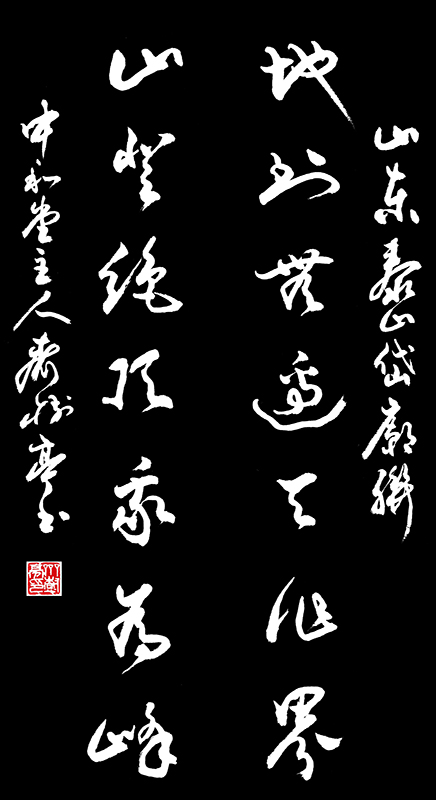 山东泰山岱庙联
地到无边天作界
山登绝顶我为峰
中和堂主人齐树亭书